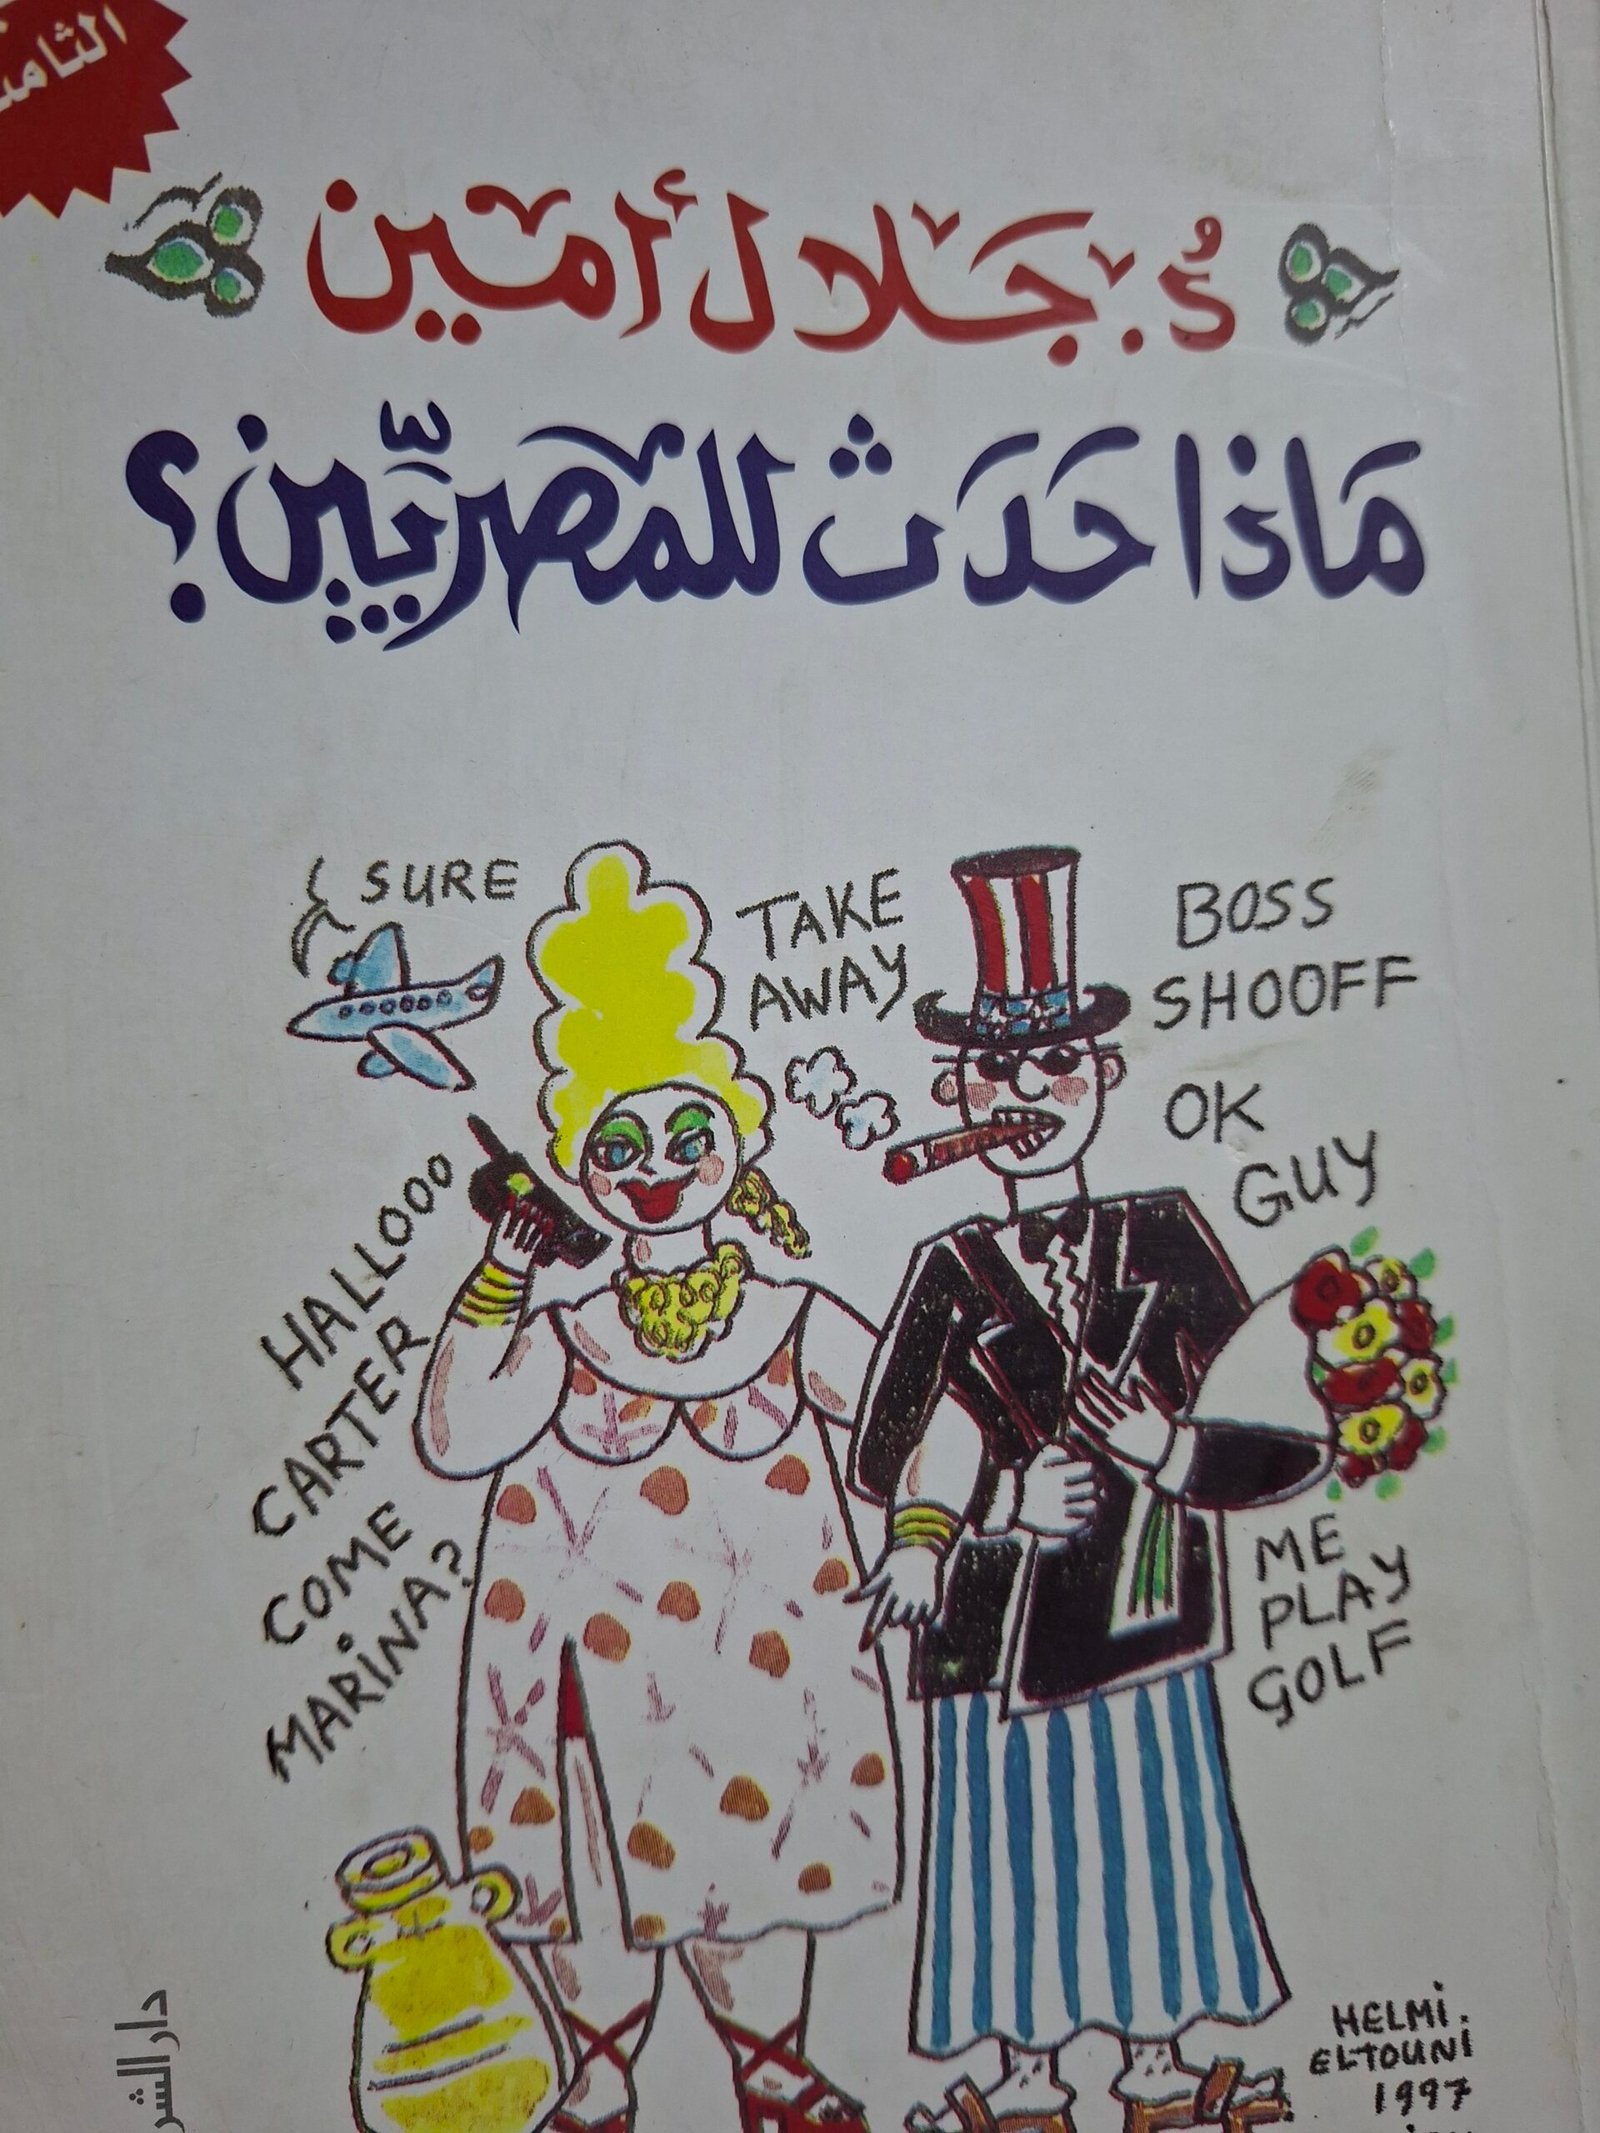 د. جلال أمين
ماذا حدث للمصريين؟
SURE
TAKE
AWAY
BOSS
SHOOFF
OK
GUY
HALLOOO
CARTER
COME
MARINA?
ME
PLAY
GOLF
HELMI.
ELTOUNI
1997